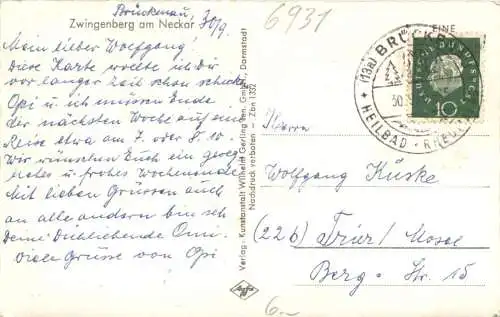 Brückenau, 30/9.
6931
Zwingenberg am Neckar
Mein lieber Wolfgang,
Diese Karte wollte ich dir
vor langer Zeit schon schicken
Opi u. ich müssen Ende
der nächsten Woche auf eine
Reise etwa am 7. oder 8. 10.
Wir wünschen Euch ein geseg-
netes u. frohes Wochenende
Mit lieben Grüssen auch
an alle andern bin ich
Deine Dichliebende Omi
viele Grüsse von Opi
Verlag: Kunstanstalt Wilhelm Gerling GmbH., Darmstadt
Nachdruck verboten – Zbn 1332
EINE
(13a) BRÜCKENAU
30.
HEILBAD · RHEUMA
DEUTSCHE BUNDESPOST
10
Herrn
Wolfgang Küske
(22b) Trier/Mosel
Berg-Str. 15
Agfa
6.-